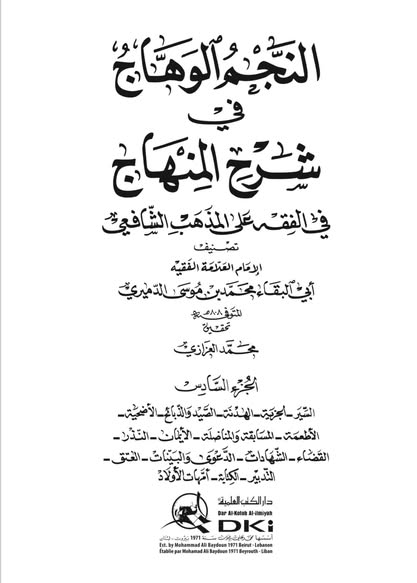 النَّجْمُ الوَهَّاجُ
في
شَرْحِ المِنْهَاجِ
في الفقه على المذهب الشافعي
تصنيف
الإمام العلامة الفقيه
أبي البقاء محمد بن موسى الدميري
المتوفى ٨٠٨هـ
تحقيق
محمد العزازي
الجزء السادس
السير - الجزية - الهدنة - الصيد والذبائح - الأضحية -
الأطعمة - المسابقة والمناضلة - الأيمان - النذر -
القضاء - الشهادات - الدعوى والبينات - العتق -
التدبير - الكتابة - أمهات الأولاد
دار الكتب العلمية
Dar Al-Kotob Al-ilmiyah
DKi
أسسها محمد علي بيضون سنة 1971 بيروت - لبنان
Est. by Mohammad Ali Baydoun 1971 Beirut - Lebanon
Établie par Mohamad Ali Baydoun 1971 Beyrouth - Liban